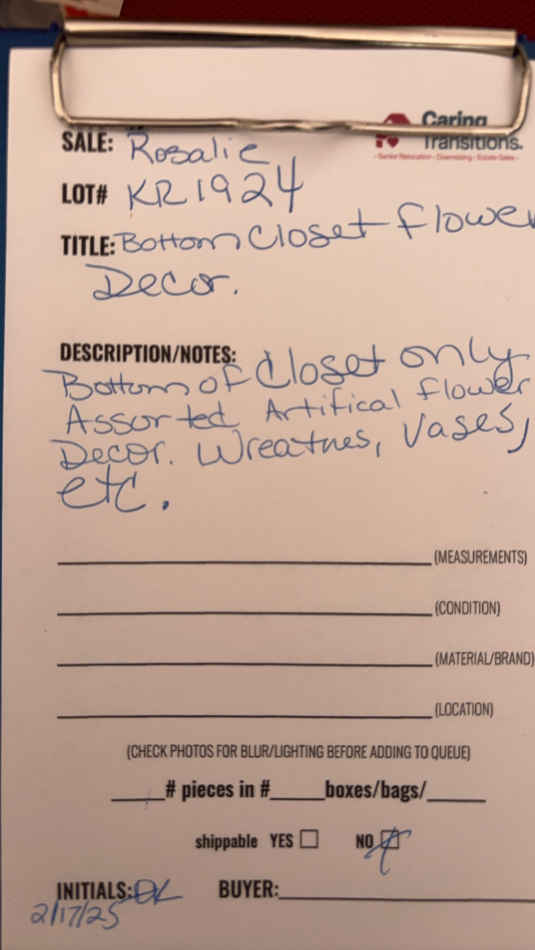 Caring
Transitions.
- Senior Relocation - Downsizing - Estate Sales -
SALE: Rosalie
LOT# KR1924
TITLE: Bottom Closet flower
Decor.
DESCRIPTION/NOTES:
Bottom of Closet only
Assorted Artifical flower
Decor. Wreathes, Vases,
etc.
(MEASUREMENTS)
(CONDITION)
(MATERIAL/BRAND)
(LOCATION)
(CHECK PHOTOS FOR BLUR/LIGHTING BEFORE ADDING TO QUEUE)
# pieces in # boxes/bags/
shippable YES NO
INITIALS: BUYER:
2/17/25